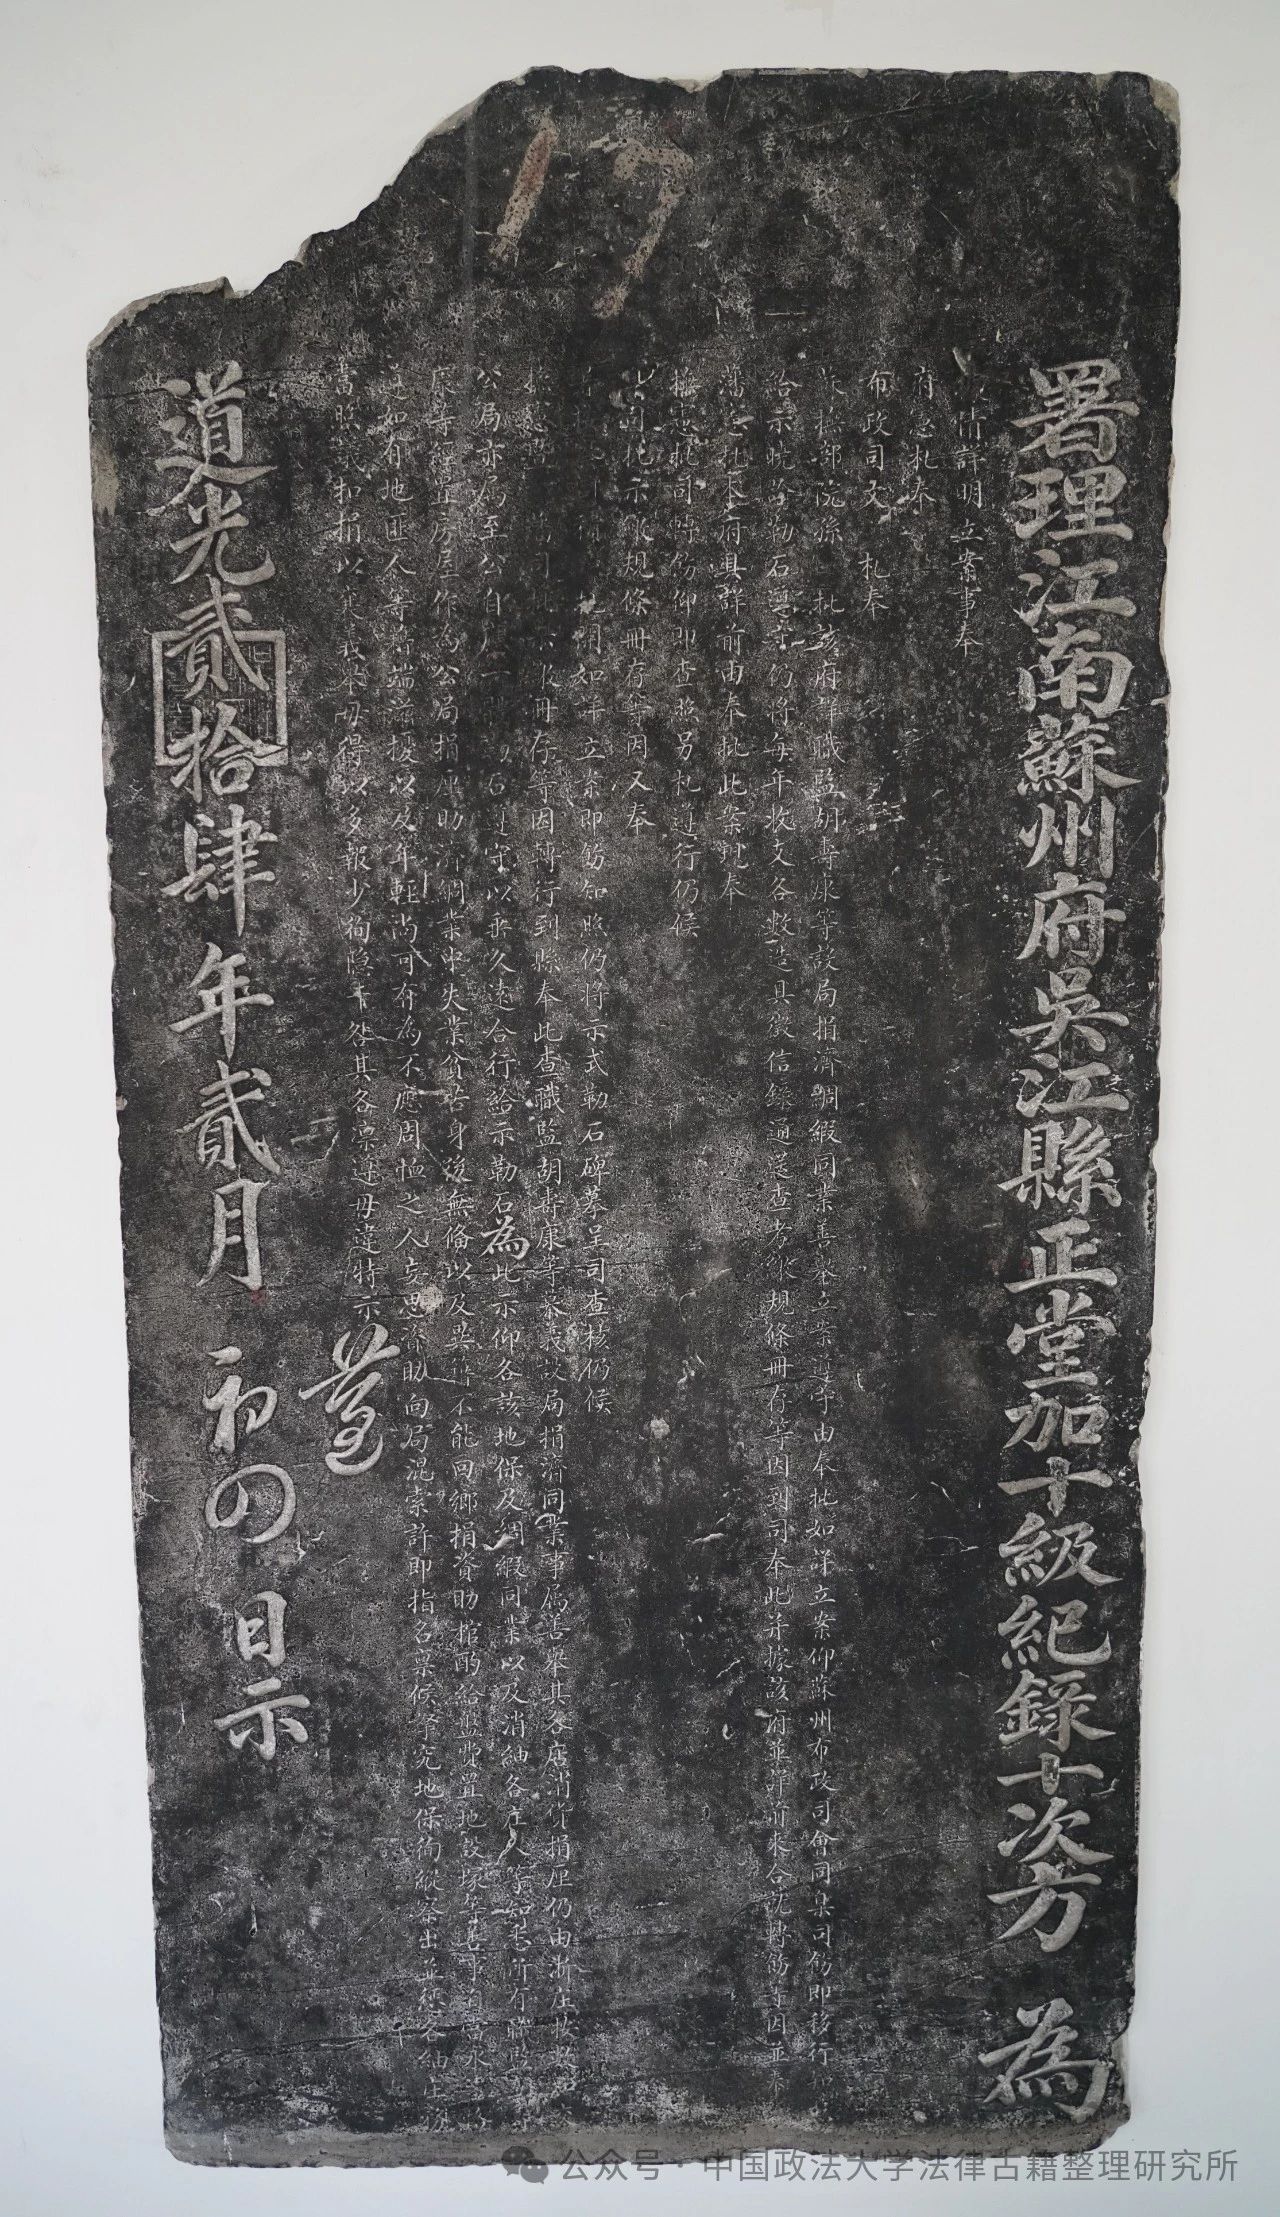 署理江南蘇州府吳江縣正堂加十級紀錄十次方 為
情詳明立案事奉
府憲札奉
布政司文 札奉
撫部院孫 批該府詳職監胡壽康等設局捐濟綢緞同業善舉立案遵守由奉批如詳立案仰蘇州布政司會同臬司飭即移行
給示曉諭勒石遵守仍將每年收支各數造具徵信錄通送查考繳規條冊存等因到司奉此并據該府並詳前來合就轉飭等因並奉
藩憲札本府具詳前由奉批此案現奉
撫憲批司轉飭仰即查照另札遵行仍候
司批示繳規條冊存等因又奉
如詳立案即飭知照仍將示式勒石碑摹呈司查核仍候
撫憲暨藩司批示繳冊存等因轉行到縣奉此查職監胡壽康等慕義設局捐濟同業事屬善舉其各店消貨捐厘仍由浙庄按數
公局亦屬至公自應一體勒石遵守以垂久遠合行給示勒石為此示仰各該地保及綢緞同業以及消紬各庄人等知悉所有職監
康等經置房屋作為公局捐厘助濟綢業中失業貧苦身後無備以及異籍不能回鄉捐資助棺酌給盤費置地設塚等善事自當永
遵如有地匪人等藉端滋擾以及年輕尚可有為不應周恤之人妄思濟助向局混索許即指名稟候拏究地保徇縱察出並懲各紬庄務
當照議扣捐以襄義舉毋得以多報少徇隱干咎其各凜遵毋違特示
遵
道光貳拾肆年貳月 初四 日示
17
公众号·中国政法大学法律古籍整理研究所